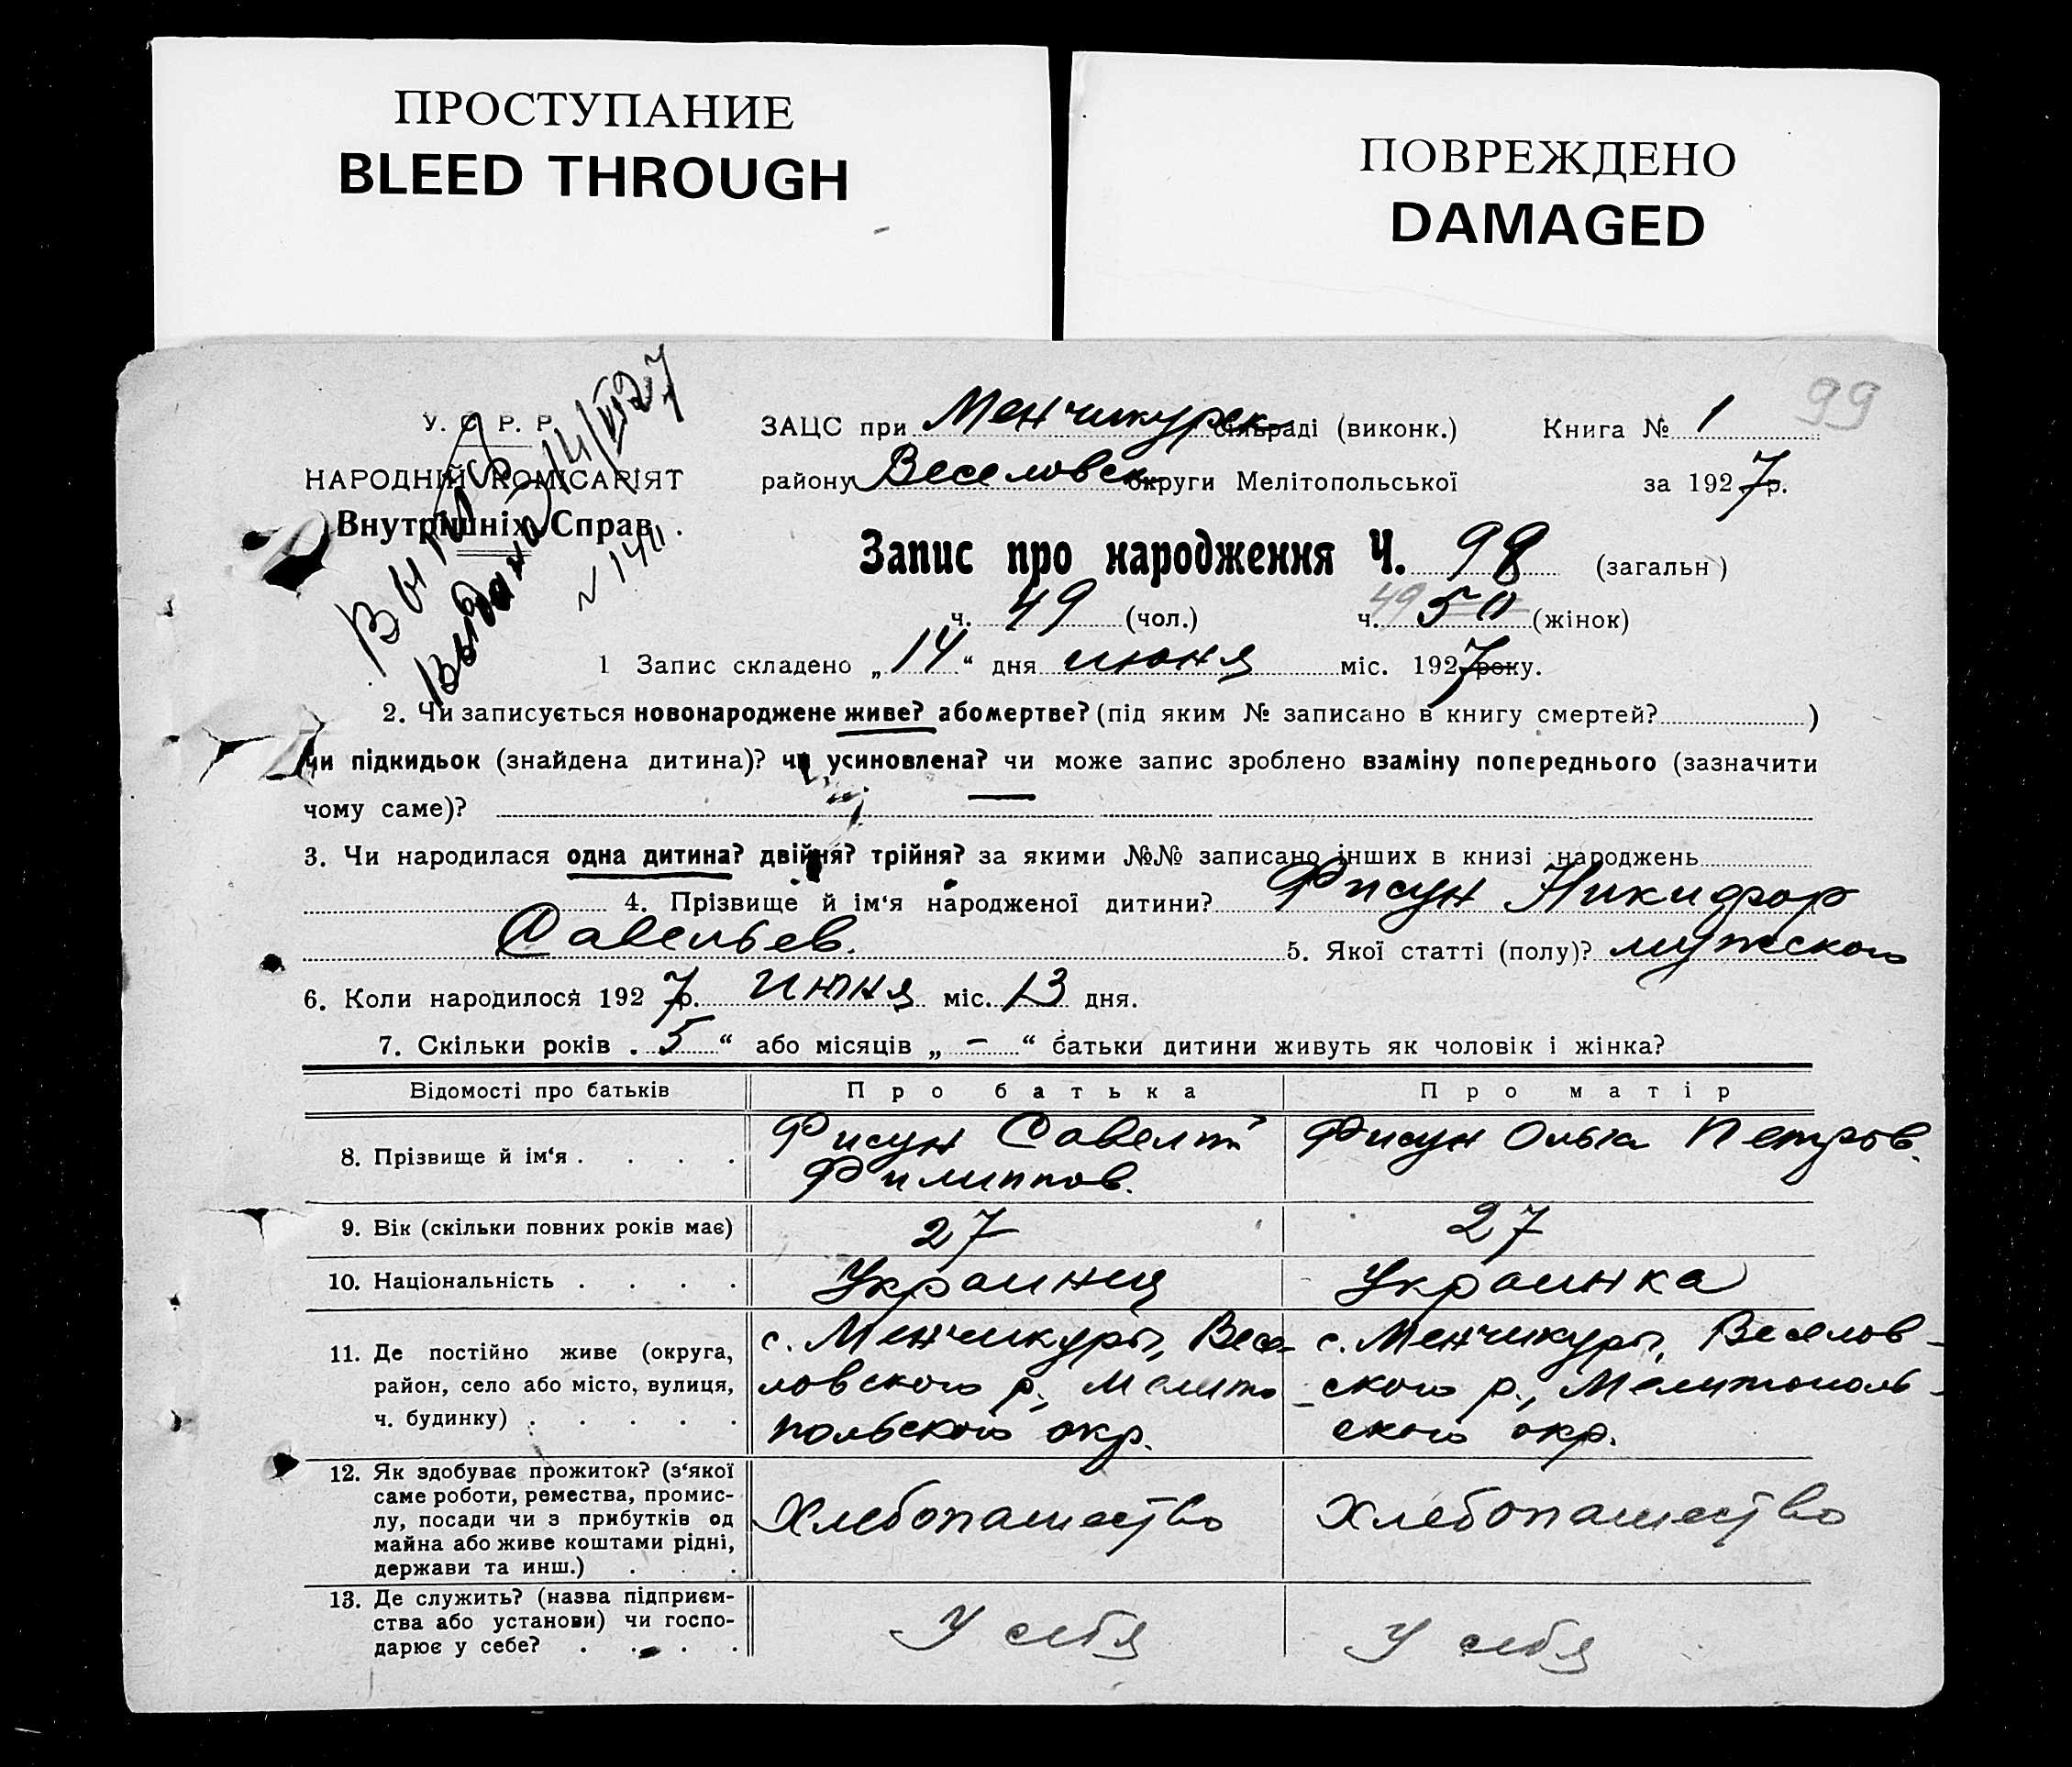 ПРОСТУПАНИЕ
BLEED THROUGH
ПОВРЕЖДЕНО
DAMAGED
99
У. С. Р. Р.
НАРОДНІЙ КОМІСАРІЯТ
Внутрішніх Справ
Выпись
Выдана 14/VI 27
N 1411
ЗАЦС при Менчикурск сільраді (виконк.) Книга № 1
району Веселовск округи Мелітопольської за 1927 р.
Запис про народження Ч. 98 (загальн)
ч. 49 (чол.) ч. 49 50 (жінок)
1 Запис складено „14“ дня июня міс. 1927 року.
2. Чи записується новонароджене живе? або мертве? (під яким № записано в книгу смертей? )
чи підкидьок (знайдена дитина)? чи усиновлена? чи може запис зроблено взаміну попереднього (зазначити
чому саме)? —
3. Чи народилася одна дитина? двійня? трійня? за якими №№ записано інших в книзі народжень
4. Прізвище й ім‘я народженої дитини? Фисун Никифор
Савельев. 5. Якої статті (полу)? мужского
6. Коли народилося 1927 р. июня міс. 13 дня.
7. Скільки років „5“ або місяців „—“ батьки дитини живуть як чоловік і жінка?
Відомості про батьків Про батька Про матір
8. Прізвище й ім‘я . . . . Фисун Савелий Фисун Ольга Петров.
Филиппов.
9. Вік (скільки повних років має) 27 27
10. Національність . . . . Украинец Украинка
11. Де постійно живе (округа, с. Менчикуры, Весе- с. Менчикуры, Веселов-
район, село або місто, вулиця, ловского р., Мелито ского р., Мелитополь-
ч. будинку) . . . . . польского окр. ского окр.
12. Як здобуває прожиток? (з‘якої
саме роботи, ремества, промис-
лу, посади чи з прибутків од Хлебопашество Хлебопашество
майна або живе коштами рідні,
держави та инш.) . . .
13. Де служить? (назва підприєм-
ства або установи) чи госпо- У себя У себя
дарює у себе? . . . .